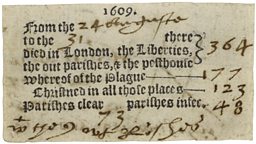 1609.
From the 24 Auguste
to the 31 there
died in London, the Liberties, 364
the out parishes, & the pesthouse
Whereof of the Plague 177
Christned in all those places 123
Parishes clear 73 parishes infec. 48